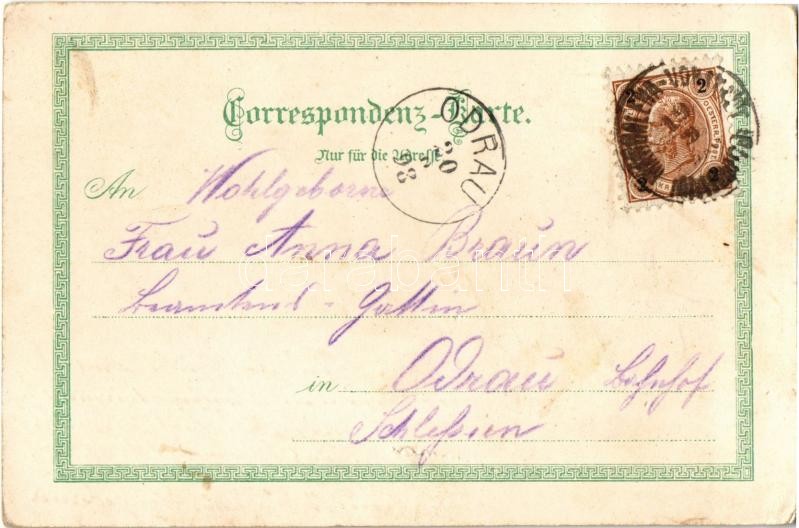 Correspondenz-Karte.
Nur für die Adresse
ODRAU
98
2
OESTERR. POST.
An Wohlgeborne
Frau Anna Braun
Beamtens-Gattin
darabanth
in Odrau Bahnhof
Schlesien